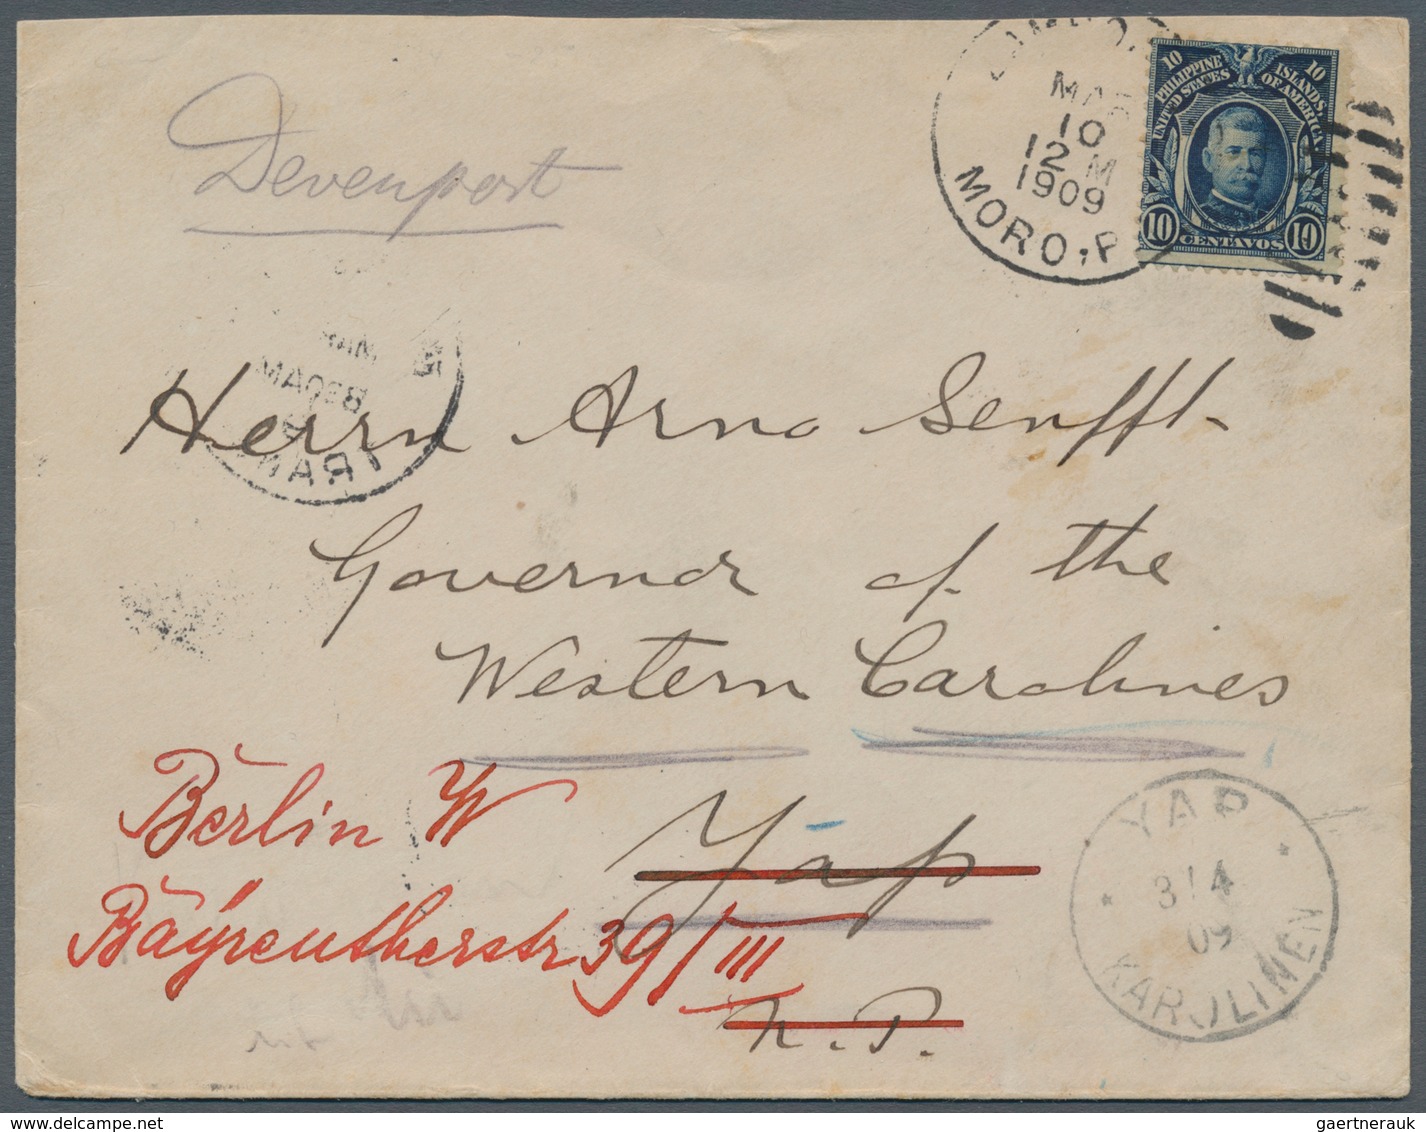 Devenport
MAR
10
12 M
1909
MORO, P
10 10
PHILIPPINE ISLANDS
UNITED STATES OF AMERICA
10 CENTAVOS 10
Herrn Arno Senfft
Governor of the
Western Carolines
Yap
N. P.
Berlin W
Bayreutherstr 39/III
YAP
3/4
09
KAROLINEN
www.delcampe.net
gaertnerauk